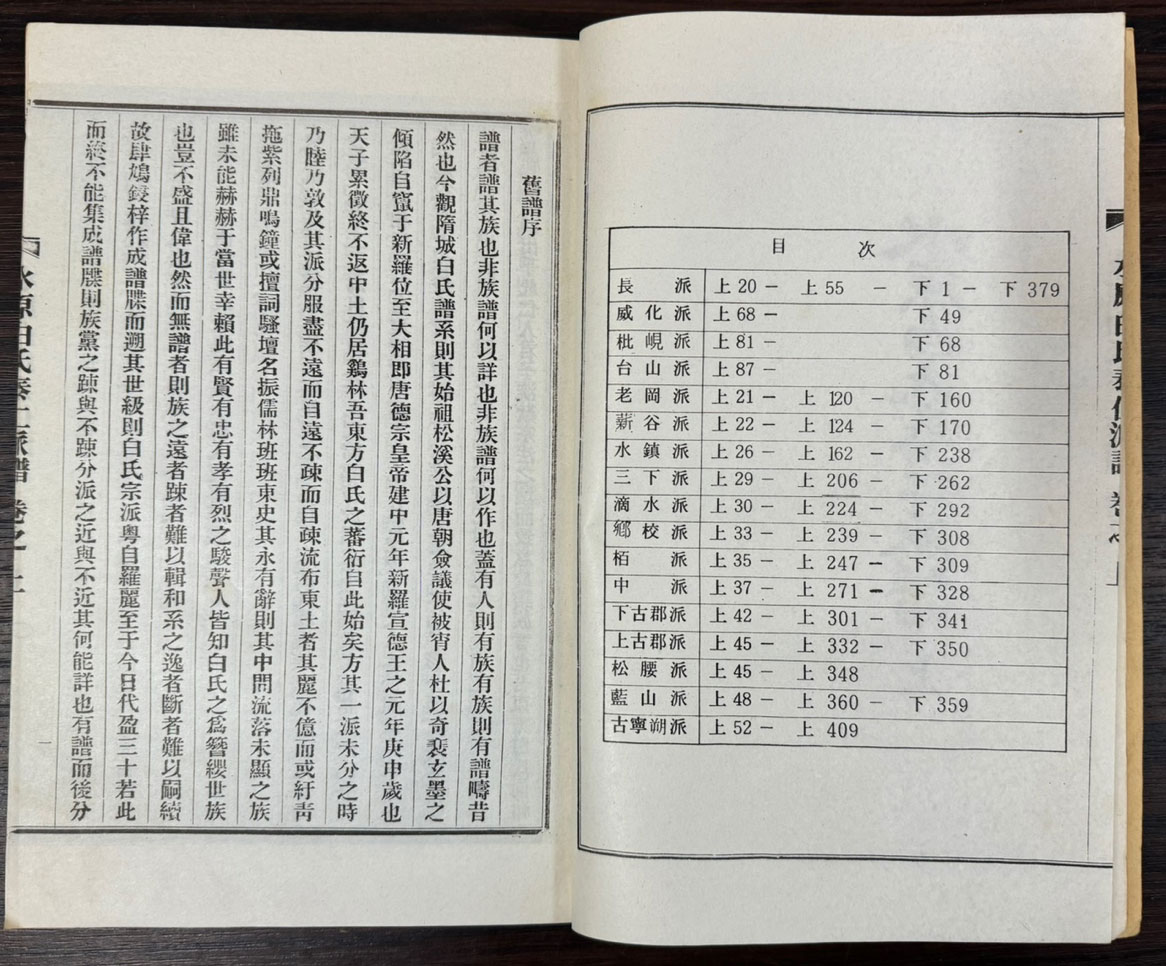 水原白氏泰仁派譜 卷之上
目次
長派 上 20 － 上 55 － 下 1 － 下 379
威化派 上 68 － 下 49
枇峴派 上 81 － 下 68
台山派 上 87 － 下 81
老岡派 上 21 － 上 120 － 下 160
薪谷派 上 22 － 上 124 － 下 170
水鎮派 上 26 － 上 162 － 下 238
三下派 上 29 － 上 206 － 下 262
滴水派 上 30 － 上 224 － 下 292
鄕校派 上 33 － 上 239 － 下 308
栢派 上 35 － 上 247 － 下 309
中派 上 37 － 上 271 － 下 328
下古郡派 上 42 － 上 301 － 下 341
上古郡派 上 45 － 上 332 － 下 350
松腰派 上 45 － 上 348
藍山派 上 48 － 上 360 － 下 359
古寧朔派 上 52 － 上 409
舊譜序
譜者譜其族也非族譜何以詳也非族譜何以作也蓋有人則有族有族則有譜疇昔
然也今觀隋城白氏譜系則其始祖松溪公以唐朝僉議使被宵人杜以奇裴玄墨之
傾陷自竄于新羅位至大相即唐德宗皇帝建中元年新羅宣德王之元年庚申歲也
天子累徵終不返中土仍居鷄林吾東方白氏之蕃衍自此始矣方其一派未分之時
乃睦乃敦及其派分服盡不遠而自遠不疎而自疎流布東土者其麗不億而或紆靑
拖紫列鼎鳴鐘或擅詞騷壇名振儒林班班東史其永有辭則其中間流落未顯之族
雖未能赫赫于當世幸賴此有賢有忠有孝有烈之駿聲人皆知白氏之爲簪纓世族
也豈不盛且偉也然而無譜者則族之遠者踈者難以輯和系之逸者斷者難以嗣續
故肆鳩鋟梓作成譜牒而遡其世級則白氏宗派粤自羅麗至于今日代盈三十若此
而終不能集成譜牒則族黨之踈與不踈分派之近與不近其何能詳也有譜而後分
水原白氏泰仁派譜 卷之上
一